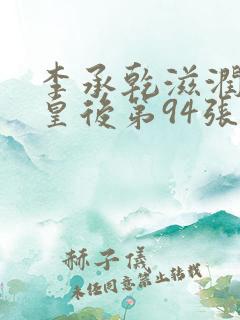 李承乾滋潤
皇後第94張
赫子儀
未經同意禁止轉載